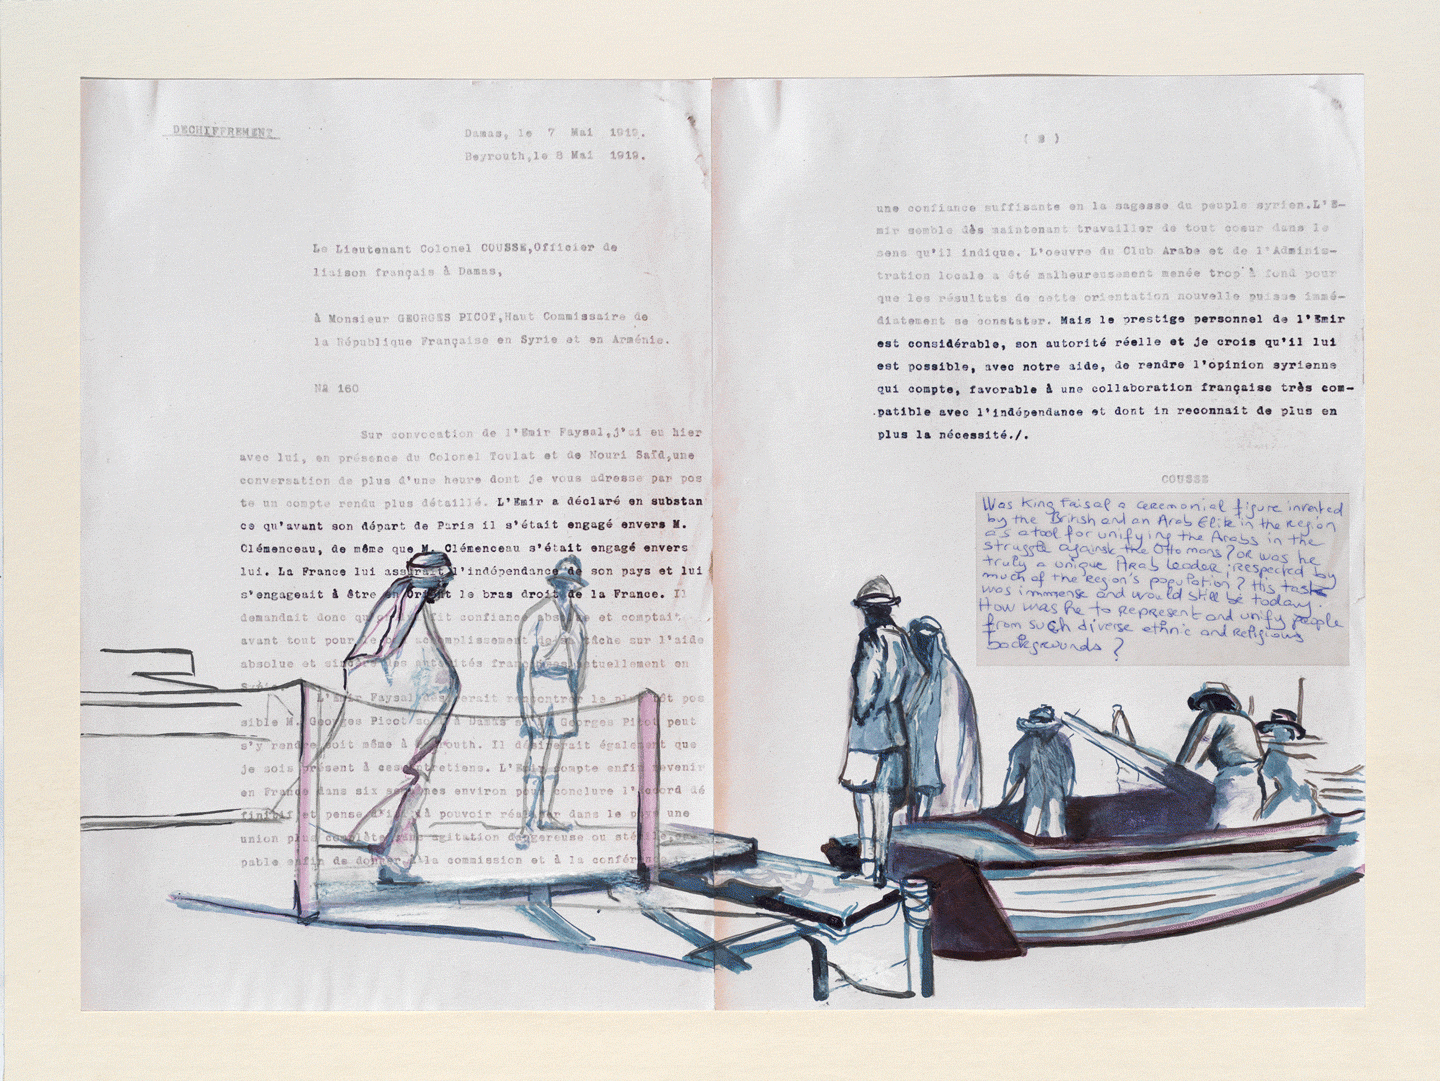 DECHIFFREMENT
Damas, le 7 Mai 1919.
Beyrouth,le 8 Mai 1919.
Le Lieutenant Colonel COUSSE,Officier de
liaison français à Damas,
à Monsieur GEORGES PICOT,Haut Commissaire de
la République Française en Syrie et en Arménie.
N° 160
Sur convocation de l'Emir Faysal,j'ai eu hier
avec lui, en présence du Colonel Toulat et de Nouri Saïd,une
conversation de plus d'une heure dont je vous adresse par pos
te un compte rendu plus détaillé. L'Emir a déclaré en substan
ce qu'avant son départ de Paris il s'était engagé envers M.
Clémenceau, de même que M. Clémenceau s'était engagé envers
lui. La France lui assurait l'indépendance de son pays et lui
s'engageait à être en Orient le bras droit de la France. Il
demandait donc confiance et comptait
avant tout pour le accomplissement de sa tâche sur l'aide
absolue et sincère des autorités françaises actuellement en
L'Emir Faysal désirerait rencontrer le plus tôt pos
sible M. Georges Picot soit à Damas si M. Georges Picot peut
s'y rendre soit même à Beyrouth. Il désirerait également que
je sois présent à ces entretiens. L'Emir compte enfin revenir
en France dans six semaines environ pour conclure l'accord dé
finitif et pense d'ici là pouvoir réaliser dans le pays une
union plus complète sans agitation dangereuse ou stérile,
pable enfin de donner à la commission et à la conférence
( 2 )
une confiance suffisante en la sagesse du peuple syrien.L'E-
mir semble dès maintenant travailler de tout coeur dans le
sens qu'il indique. L'oeuvre du Club Arabe et de l'Adminis-
tration locale a été malheureusement menée trop à fond pour
que les résultats de cette orientation nouvelle puisse immé-
diatement se constater. Mais le prestige personnel de l'Emir
est considérable, son autorité réelle et je crois qu'il lui
est possible, avec notre aide, de rendre l'opinion syrienne
qui compte, favorable à une collaboration française très com-
patible avec l'indépendance et dont in reconnait de plus en
plus la nécessité./.
COUSSE
Was King Faisal a ceremonial figure invented
by the British and an Arab Elite in the region
as a tool for unifying the Arabs in the
struggle against the Ottomans? or was he
truly a unique Arab leader, respected by
much of the region's population? His task
was immense and would still be today.
How was he to represent and unify people
from such diverse ethnic and religious
backgrounds?